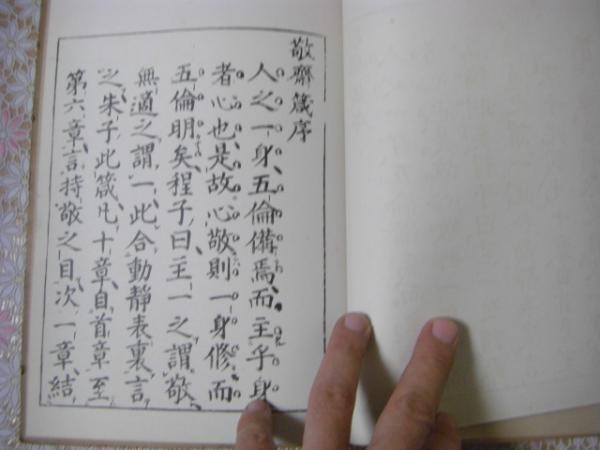 敬齋箴序
人之一身、五倫備焉、而主乎身
者心也、是故心敬則一身修、而
五倫明矣、程子曰、主一之謂敬、
無適之謂一、此合動静表裏言
之、朱子此箴凡十章、自首章至
第六章、言持敬之目、次一章、結